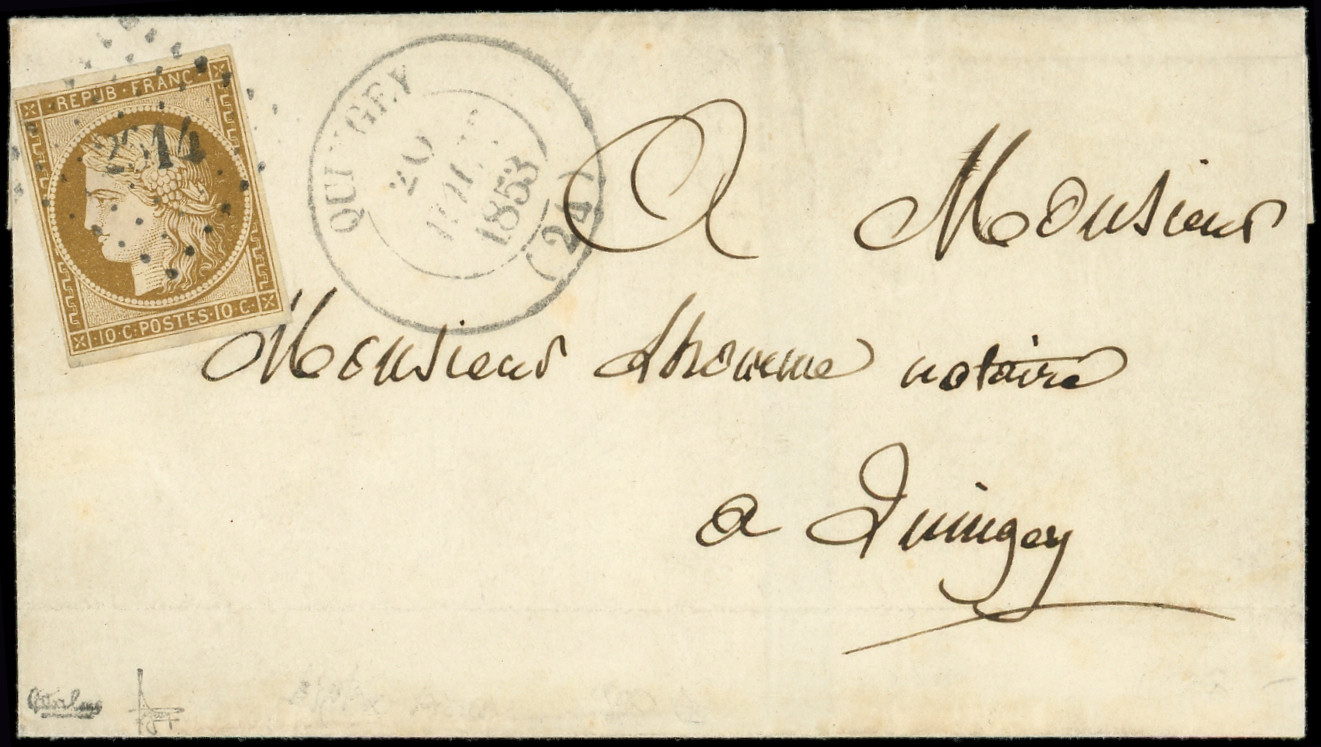 REPUB·FRANC·
2614
·10·C·POSTES·10·C·
QUINGEY
20
JUIL
1853
(24)
A Monsieur
Monsieur Lhomme notaire
a Quingey